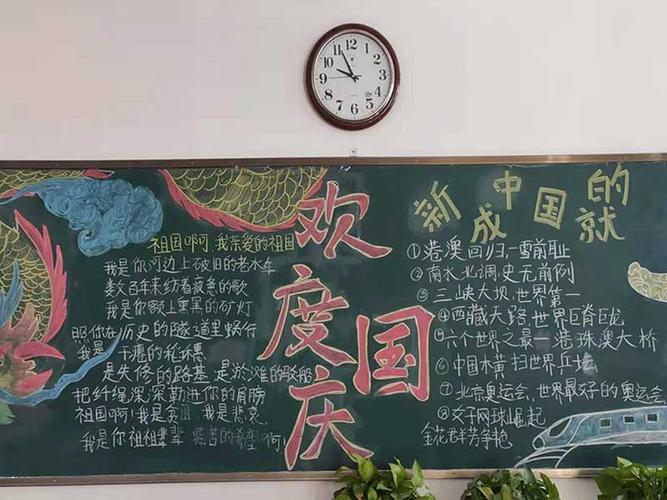 11 12 1 2 3 4 5 6 7 8 9 10
欢度国庆
祖国啊,我亲爱的祖国
我是你河边上破旧的老水车
数百年来纺着疲惫的歌
我是你额上熏黑的矿灯
照你在历史的隧道里蜗行
我是干瘪的稻穗
是失修的路基 是淤滩的驳船
把纤绳深深勒进你的肩膀
祖国啊!我是贫困 我是悲哀
我是你祖祖辈辈 痛苦的希望啊!
新中国的成就
①港澳回归,一雪前耻
②南水北调,史无前例
③三峡大坝,世界第一
④西藏天路 世界
⑤六个世界之最—港珠澳大桥
⑥中国横扫世界乒坛
⑦北京奥运会,世界最好的奥运会
⑧女子网球崛起
金花群芳争艳